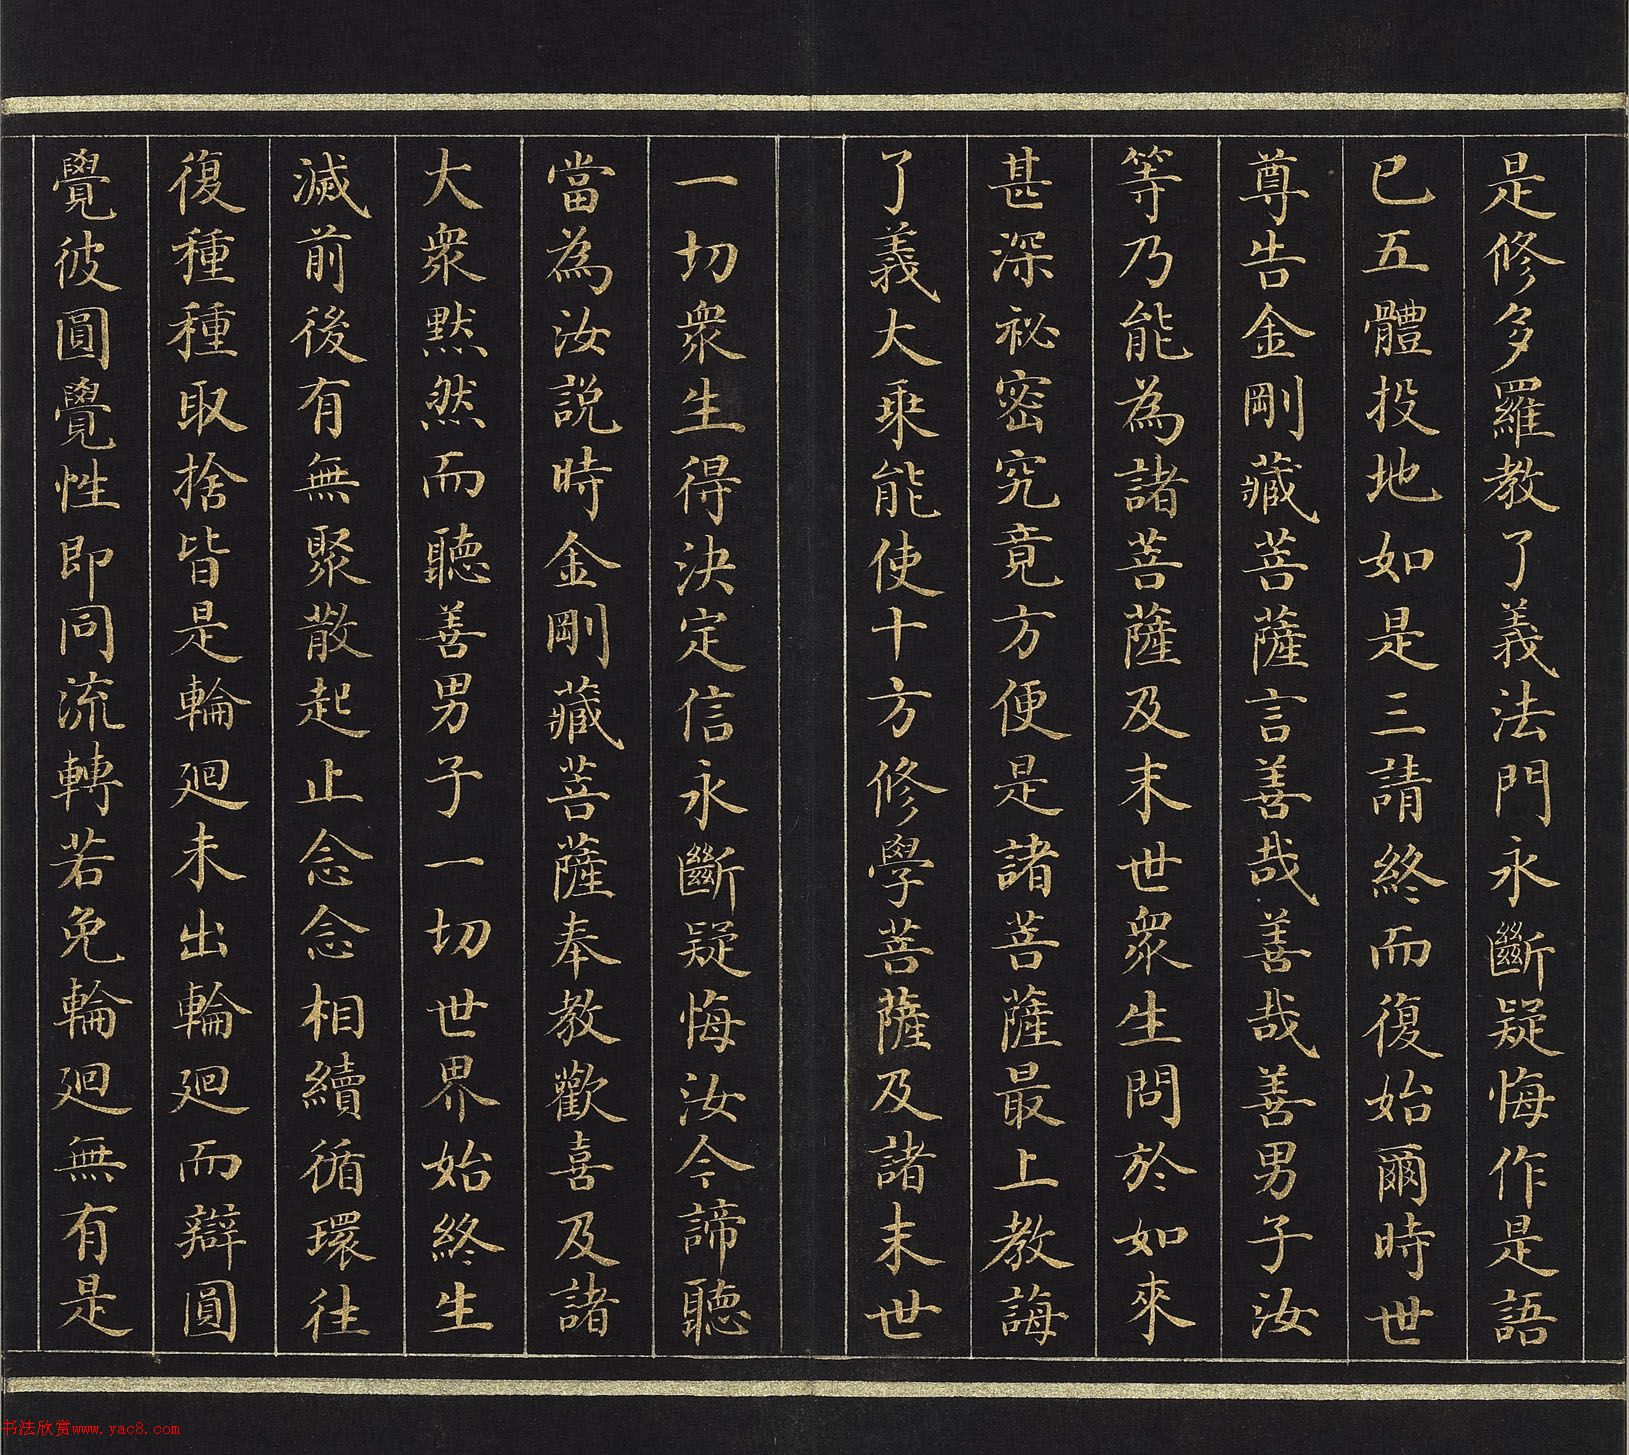 是修多羅教了義法門永斷疑悔作是語
已五體投地如是三請終而復始爾時世
尊告金剛藏菩薩言善哉善哉善男子汝
等乃能為諸菩薩及末世眾生問於如來
甚深祕密究竟方便是諸菩薩最上教誨
了義大乘能使十方修學菩薩及諸末世
一切眾生得決定信永斷疑悔汝今諦聽
當為汝說時金剛藏菩薩奉教歡喜及諸
大眾默然而聽善男子一切世界始終生
滅前後有無聚散起止念念相續循環往
復種種取捨皆是輪廻未出輪廻而辯圓
覺彼圓覺性即同流轉若免輪廻無有是
书法欣赏www.yac8.com